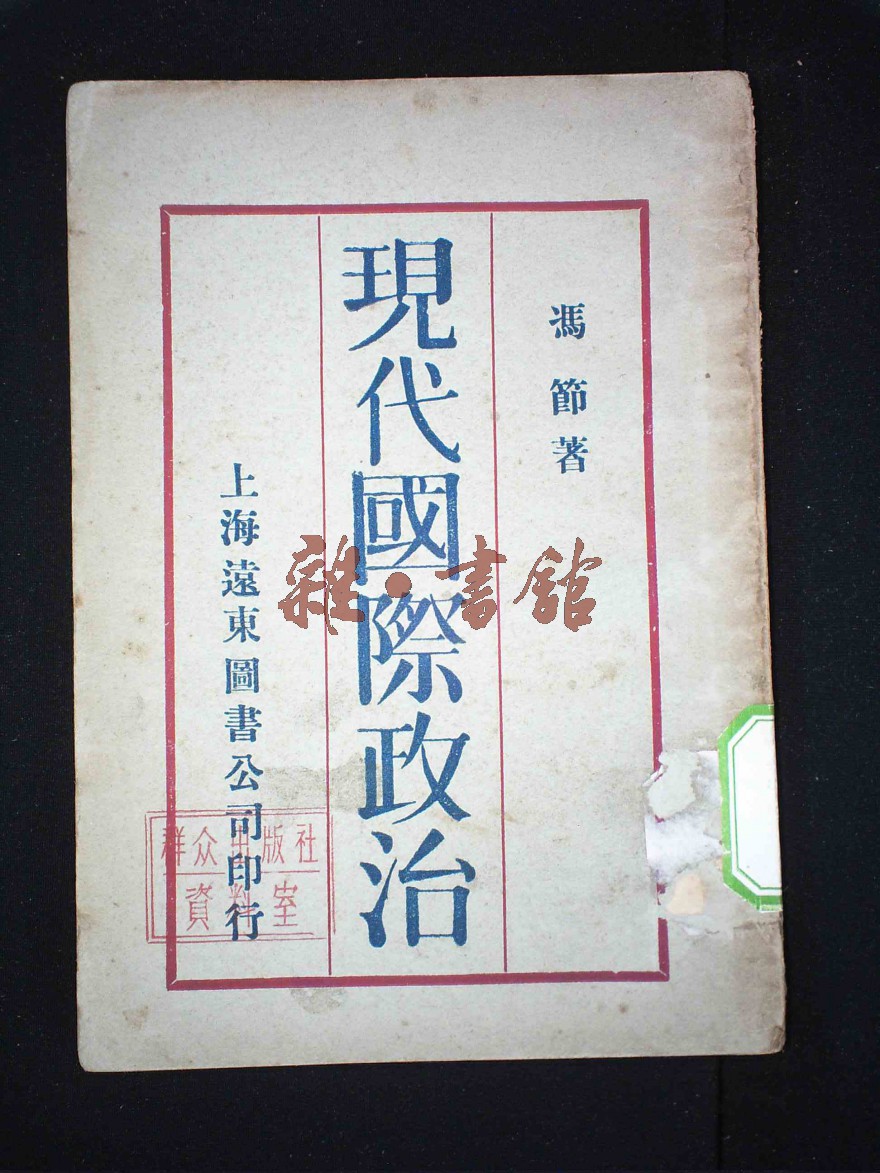 馮節著
現代國際政治
上海遠東圖書公司印行
群众出版社
資料室
雜·書館